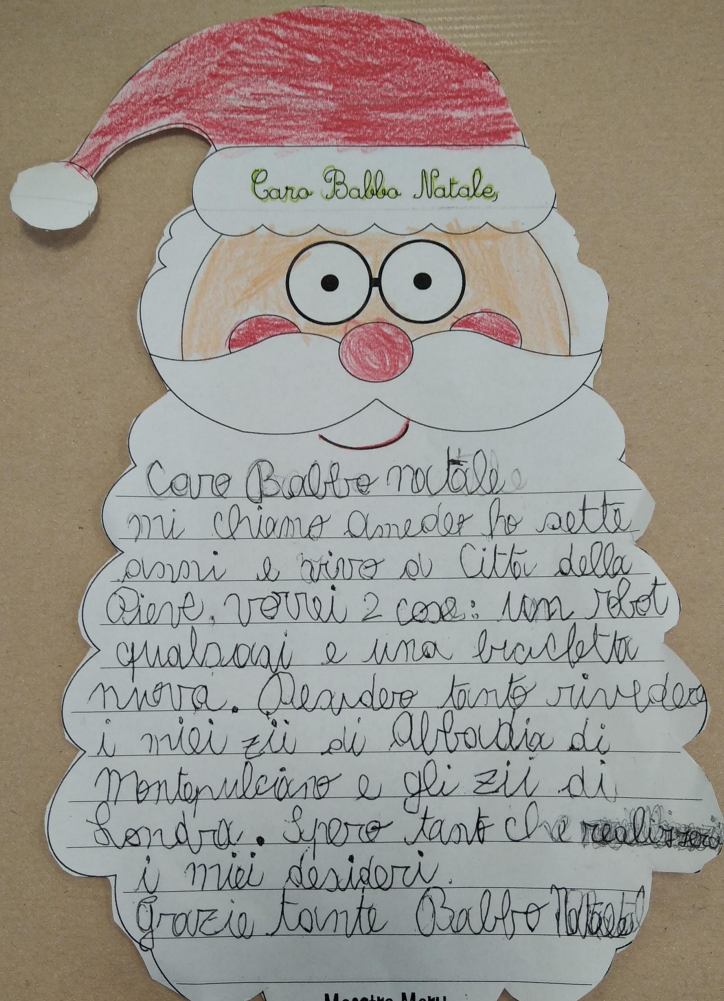 Caro Babbo Natale,
Caro Babbo natale
mi chiamo Amedeo ho sette
anni e vivo a Città della
Pieve, vorrei 2 cose: um robot
qualsiasi e una bicicletta
nuova. Desidero tanto riveder
i miei zii di Abbadia di
Montepulciano e gli zii di
Londra. Spero tanto che realizzerai
i miei desideri.
Grazie tante Babbo Natale
Maestra Mary